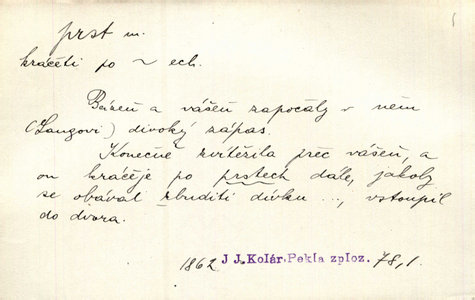 prst m.
kráčeti po ~ ech.
Bázeň a vášeň započaly v něm
(Langovi) divoký zápas.
Konečně zvítězila přec vášeň, a
on kráčeje po prstech dále, jakoby
se obával zbuditi dívku ..., vstoupil
do dvora.
1862 J J. Kolár. Pekla zploz. 78,1.